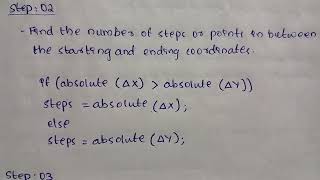 Step:02
- Find the number of steps or points in between
the starting and ending coordinates.
if (absolute (ΔX) > absolute (ΔY))
steps = absolute (ΔX);
else
steps = absolute (ΔY);
Step:03